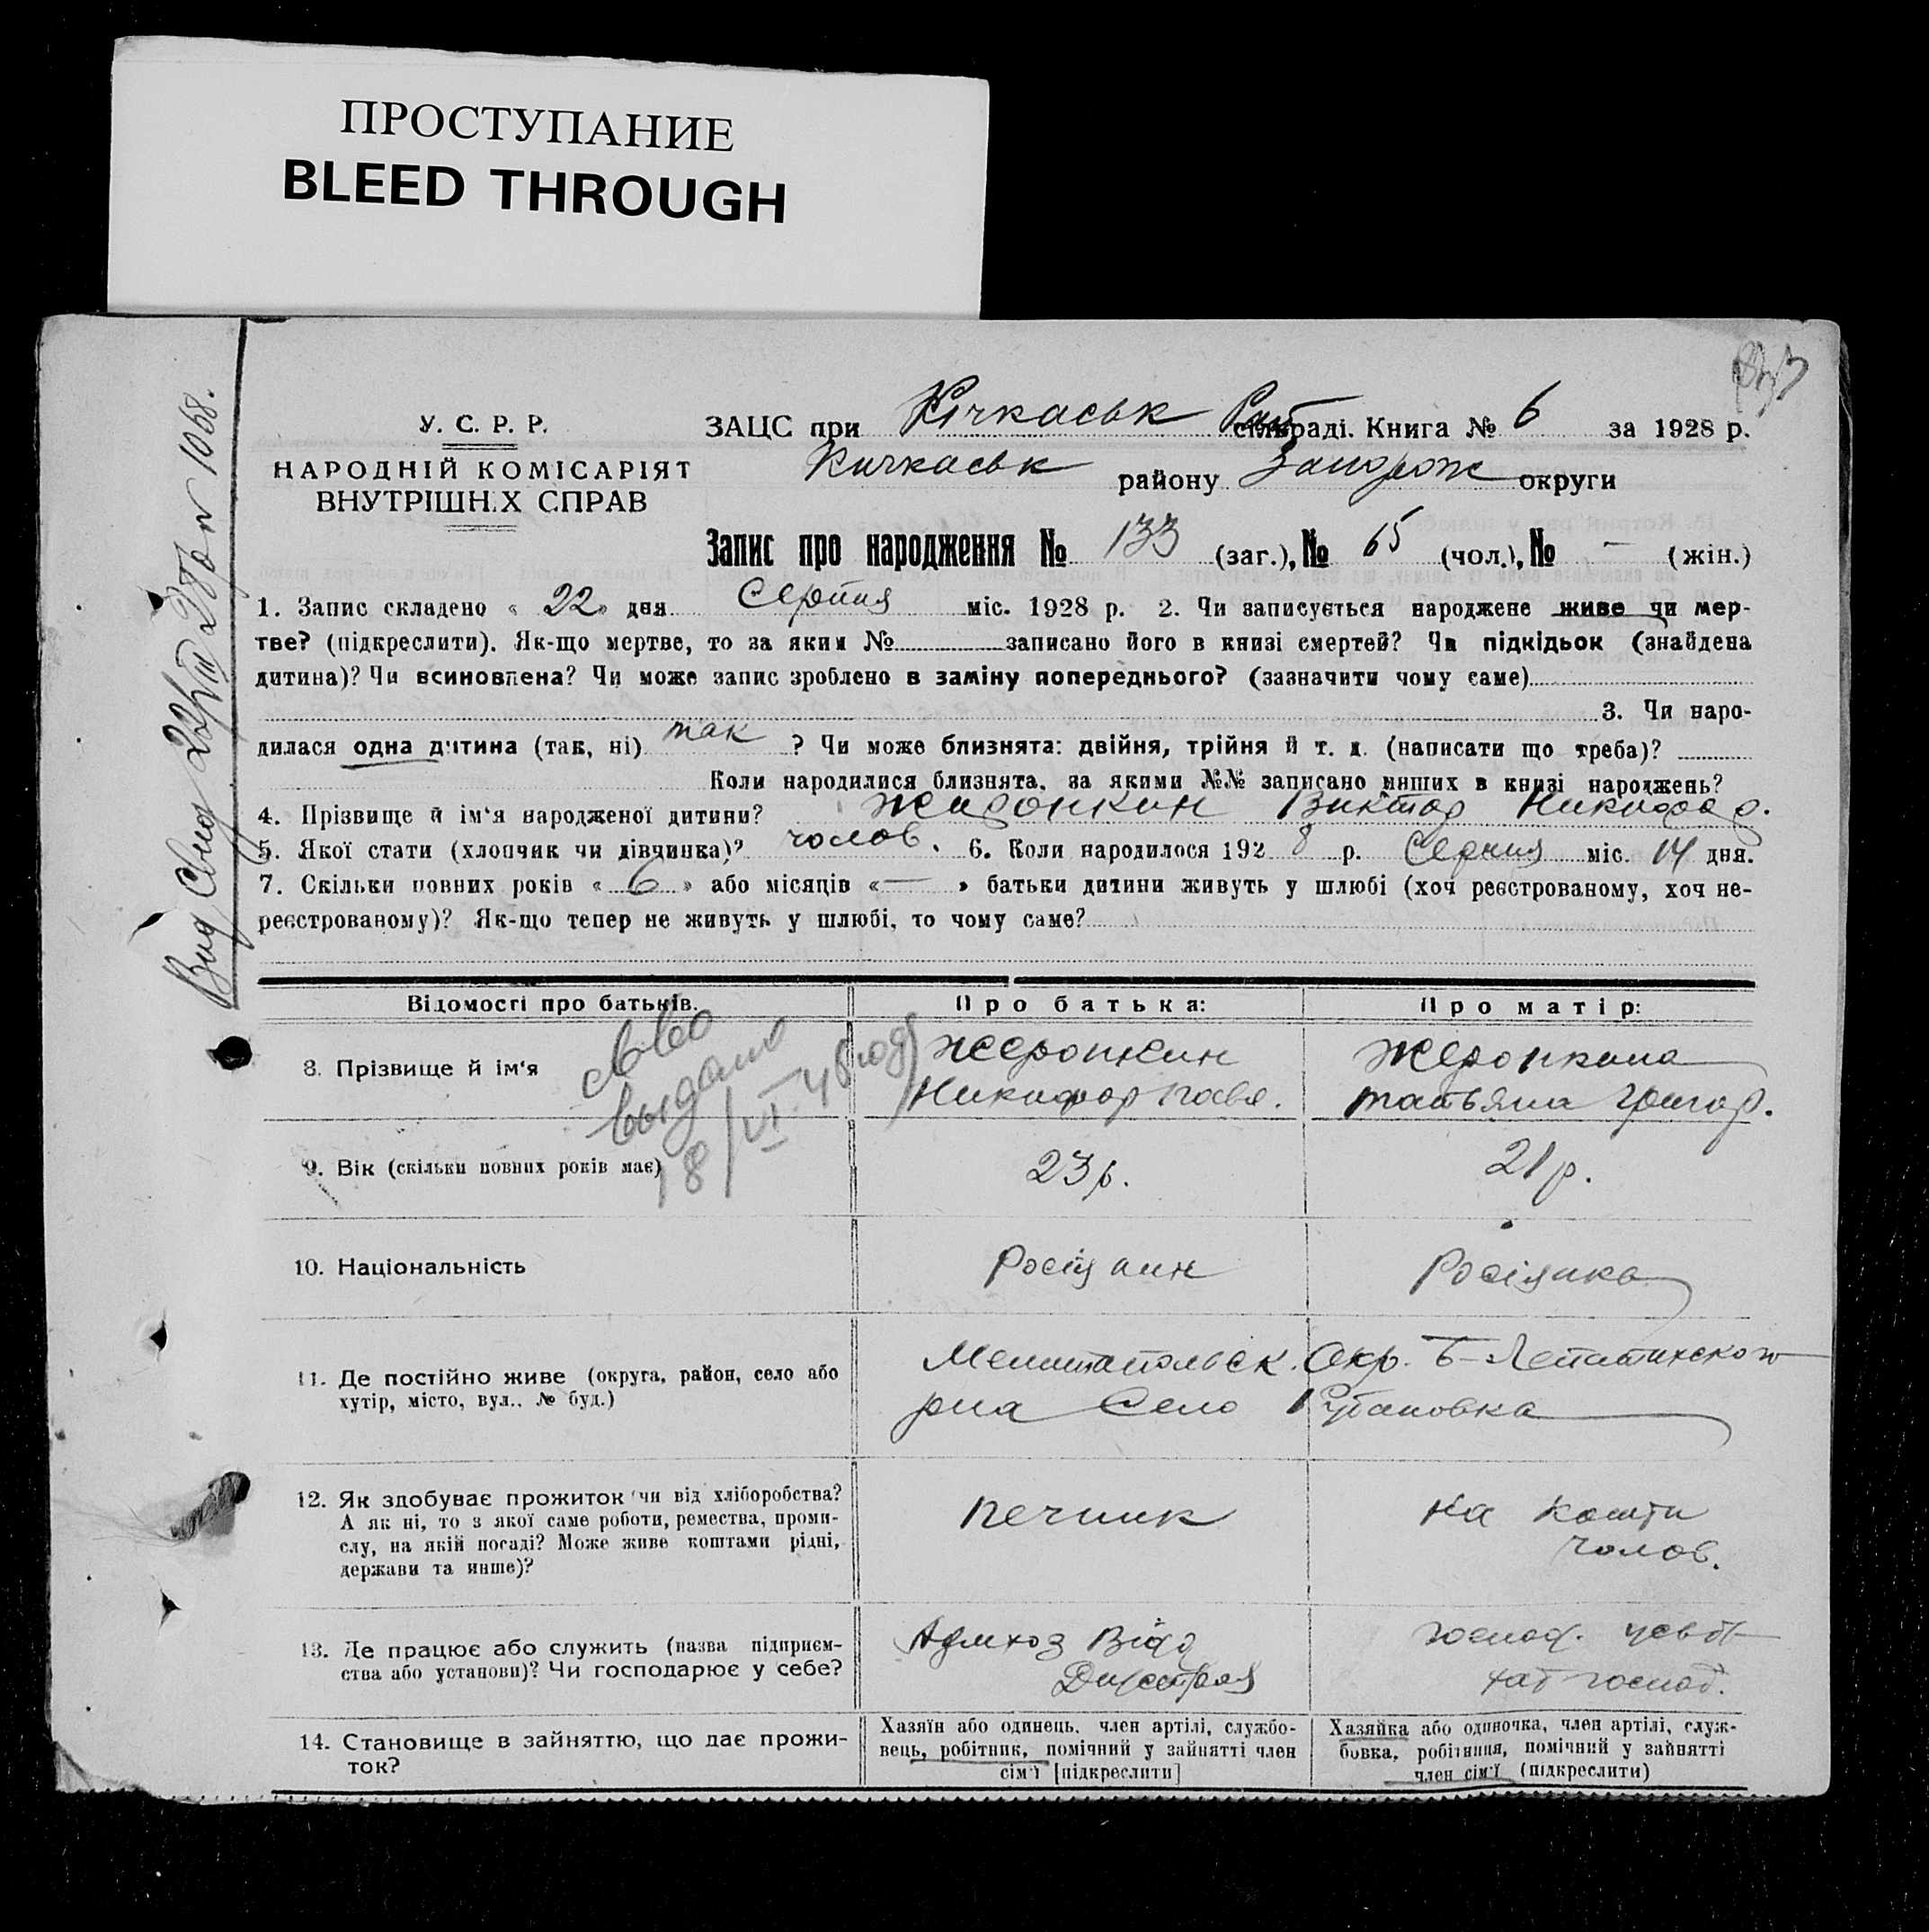 ПРОСТУПАНИЕ
BLEED THROUGH
У. С. Р. Р.
НАРОДНІЙ КОМІСАРІЯТ
ВНУТРІШН.Х СПРАВ
ЗАЦС при Кічкаськ раді. Книга № 6 за 1928 р.
Кичкаськ району Запорож округи
Запис про народження № 133 (заг.), № 65 (чол.), № — (жін.)
1. Запис складено « 22 » дня Серпня міс. 1928 р. 2. Чи записується народжене живе чи мер-
тве? (підкреслити). Як-що мертве, то за яким № записано його в книзі смертей? Чи підкідьок (знайдена
дитина)? Чи всиновлена? Чи може запис зроблено в заміну попереднього? (зазначити чому саме)
3. Чи наро-
дилася одна дитина (так, ні) так ? Чи може близнята: двійня, трійня й т. д. (написати що треба)?
Коли народилися близнята, за якими №№ записано инших в книзі народжень?
4. Прізвище й ім'я народженої дитини? Виктор Никифор.
5. Якої стати (хлопчик чи дівчинка)? чолов. 6. Коли народилося 192 8 р. Серпня міс. 14 дня.
7. Скільки повних років « 6 » або місяців « — » батьки дитини живуть у шлюбі (хоч реєстрованому, хоч не-
реєстрованому)? Як-що тепер не живуть у шлюбі, то чому саме?
Відомості про батьків. Про батька: Про матір:
8. Прізвище й ім'я
Никифор Павл. Татьяна Григор.
выдано
9. Вік (скільки повних років має) 23 р. 21 р.
10. Національність Росіянин Росіянка
11. Де постійно живе (округа, район, село або
хутір, місто, вул.. № буд.)
Мелитопольск. Окр. Б-Лепатихского
р-на Село Рубановка
12. Як здобуває прожиток чи від хліборобства?
А як ні, то з якої саме роботи, ремества, проми-
слу, на якій посаді? Може живе коштами рідні,
держави та инше)?
печник
на кошти
чолов.
13. Де працює або служить (назва підприєм-
ства або установи)? Чи господарює у себе?
Адмхоз Відд
Дніпрострой
14. Становище в зайняттю, що дає прожи-
ток?
Хазяїн або одинець, член артілі, службо-
вець, робітник, помічний у зайнятті член
сім'ї [підкреслити]
Хазяйка або одиночка, член артілі, служ-
бовка, робітниця, помічний у зайнятті
член сім'ї (підкреслити)